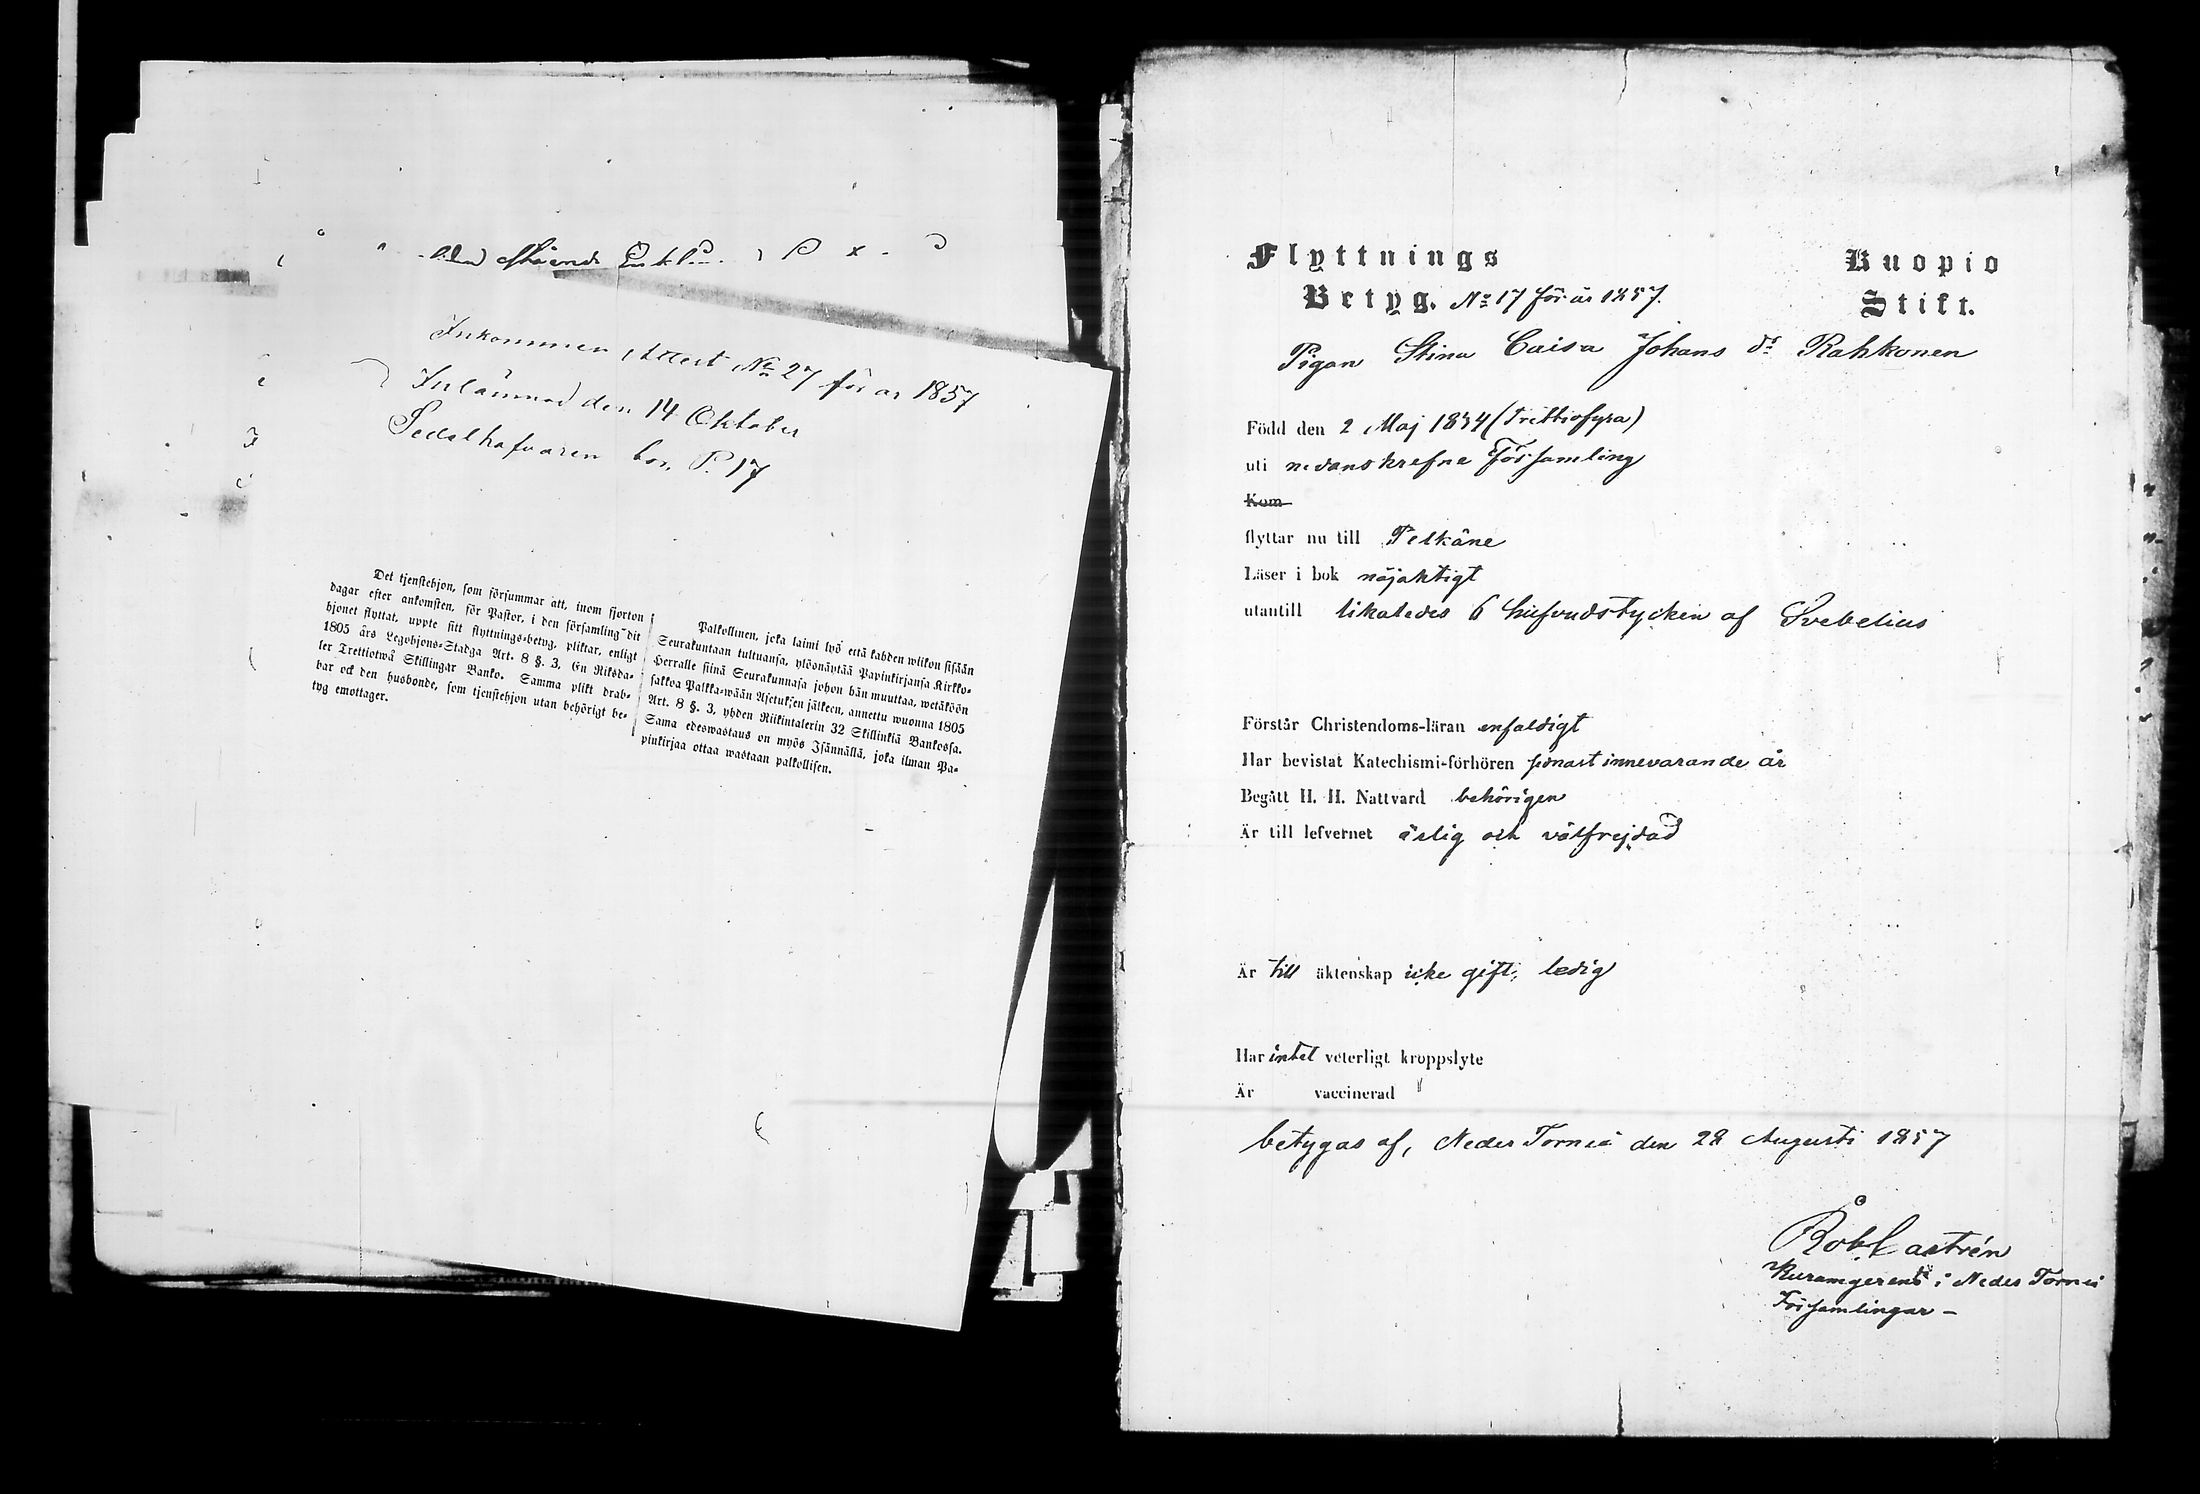 Inkommen Attest No 27 för år 1857
Inlämnad den 14 Oktober
Sedelhafvaren bor P. 17
Det tjenstehjon, som försummar att, inom fjorton
dagar efter ankomsten, för Pastor, i den församling dit
hjonet flyttat, uppte sitt flyttnings-betyg, pliktar, enligt
1805 års Legohjons-Stadga Art. 8 §. 3, En Riksda-
ler Trettiotwå Skillingar Banko. Samma plikt drab-
bar ock den husbonde, som tjenstehjon utan behörigt be-
tyg emottager.
Palkollinen, joka laimi lyö että kahden wiikon sisään
Seurakuntaan tultuansa, ylösnäytää Papinkirjansa Kirkko-
Herralle siinä Seurakunnasa johon hän muuttaa, wetäköön
sakkoa Palkka-wään Asetuksen jälkeen, annettu wuonna 1805
Art. 8 §. 3, yhden Riikintalerin 32 Skillinkiä Bankossa.
Sama edeswastaus on myös Isännällä, joka ilman Pa-
pinkirjaa ottaa wastaan palkollisen.
Flyttnings
Betyg. No 17 för år 1857.
Kuopio
Stift.
Pigan Stina Caisa Johans dr Rahkonen
Född den 2 Maj 1834 (trettiofyra)
uti nedanskrefne Församling
Kom
flyttar nu till Pelkäne
Läser i bok nöjaktigt
utantill likaledes 6 hufvudstycken af Svebelius
Förstår Christendoms-läran enfaldigt
Har bevistat Katechismi-förhören sednast innevarande år
Begått H. H. Nattvard behörigen
Är till lefvernet ärlig och välfrejdad
Är till äktenskap icke gift, ledig
Har intet veterligt kroppslyte
Är vaccinerad
betygas af, Neder Torneå den 28 Augusti 1857
Rob Castrén
Kuramgerent i Neder Torneå
Församlingar –